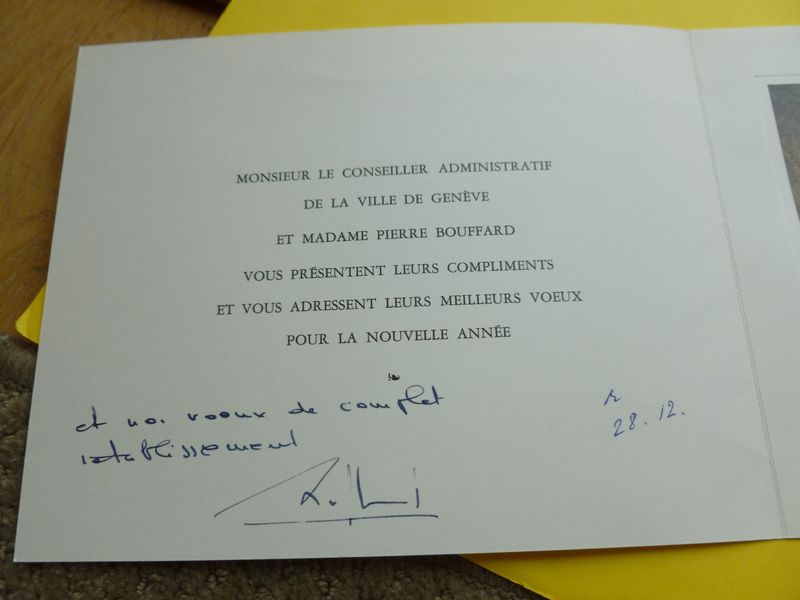 MONSIEUR LE CONSEILLER ADMINISTRATIF
DE LA VILLE DE GENÈVE
ET MADAME PIERRE BOUFFARD
VOUS PRÉSENTENT LEURS COMPLIMENTS
ET VOUS ADRESSENT LEURS MEILLEURS VOEUX
POUR LA NOUVELLE ANNÉE
et nos voeux de complet
rétablissement
28.12.